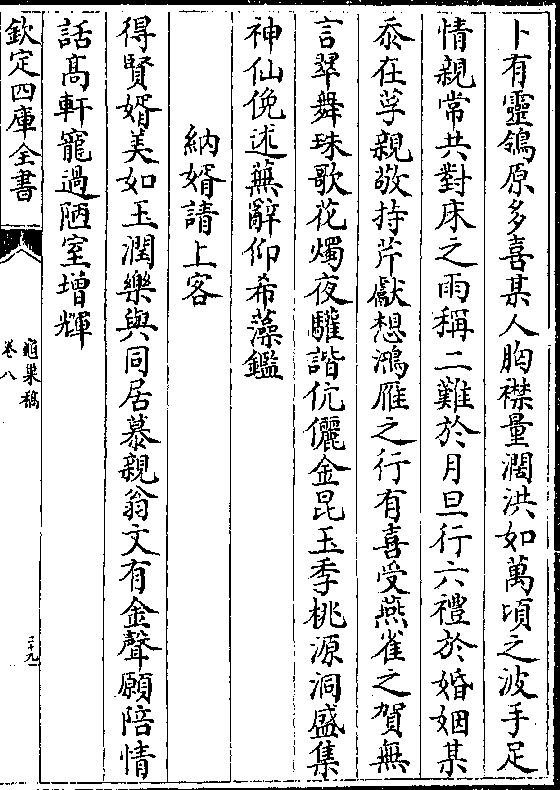 卜有靈鴒原多喜某人胸襟量濶洪如萬頃之波手足
情親常共對床之雨稱二難於月旦行六禮於婚姻某
忝在莩親敬持芹獻想鴻雁之行有喜受燕雀之賀無
言翠舞珠歌花燭夜驩諧伉儷金昆玉季桃源洞盛集
神仙俛述蕪辭仰希藻鑑
納婿請上客
得賢婿美如玉潤樂與同居慕親翁文有金聲願陪情
話髙軒寵過陋室增輝
欽定四庫全書
龜巢稿
卷八
三十九